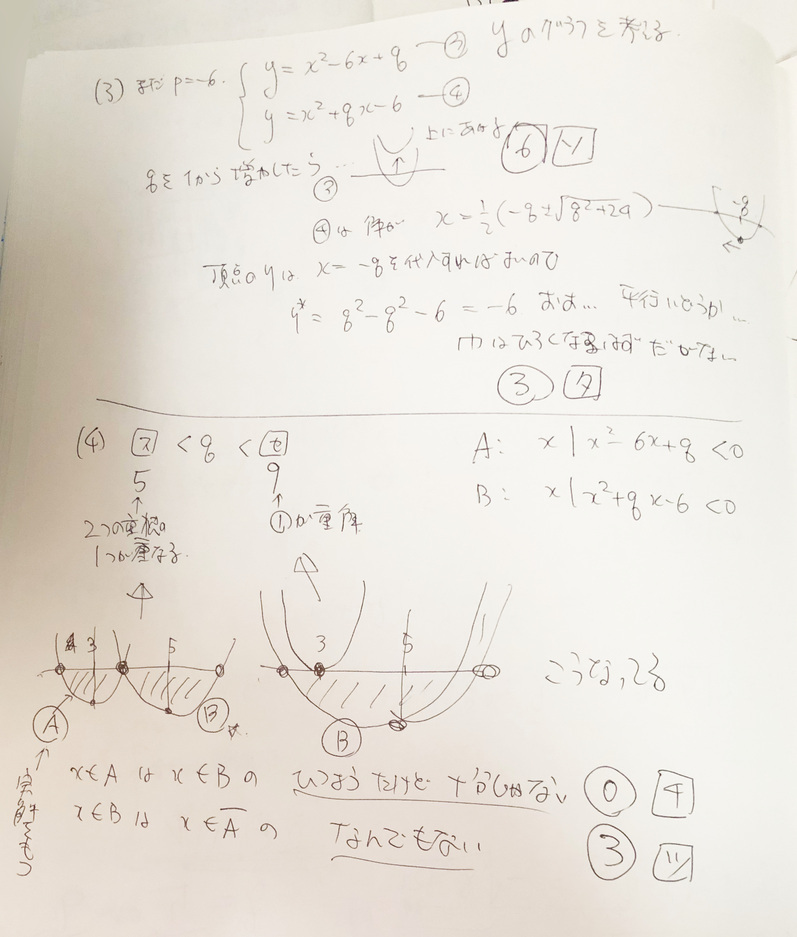 (3) まだ p=-6. { y = x²-6x+q ―③ yのグラフを考える.
y = x²+qx-6 ―④
上にあがる ⑥ ソ
qを1から増加したら… ③
④は 解が x = 1/2(-q±√q²+24) -q
頂点のyは x = -qを代入すればよいので
y* = q²-q²-6 = -6 おお… 平行いどうか…
巾はひろくなるはずだがない…
③ タ
(4) ス < q < セ A: x | x²-6x+q <0
5 9 B: x | x²+qx-6 <0
↑ ↑
2つの ①が重解
1つが重なる.
3 5 3 5
こうなってる
A B B
x∈A は x∈Bの ひつようだけど 十分じゃない ⓪ チ
x∈B は x∈A̅ の なんでもない ③ ツ
実解をもつ